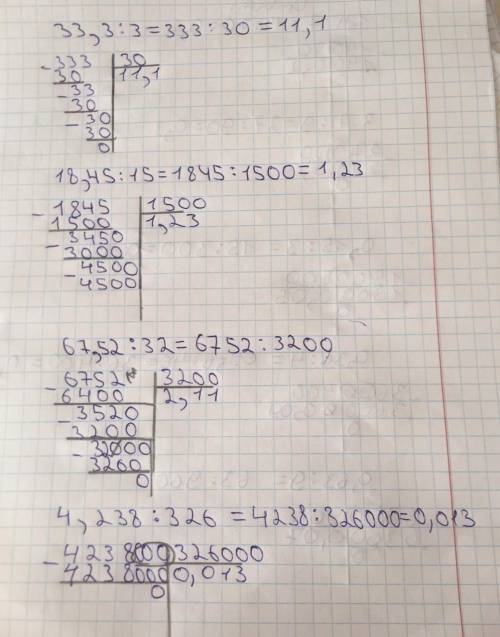 33,3:3=333:30=11,1
-333 30
30 11,1
-33
30
-30
30
0
18,45:15=1845:1500=1,23
-1845 1500
1500 1,23
-3450
3000
-4500
4500
67,52:32=6752:3200
-6752 3200
6400 2,11
-3520
3200
-32000
3200
0
4,238:326=4238:326000=0,013
-4238000 326000
4238000 0,013
0